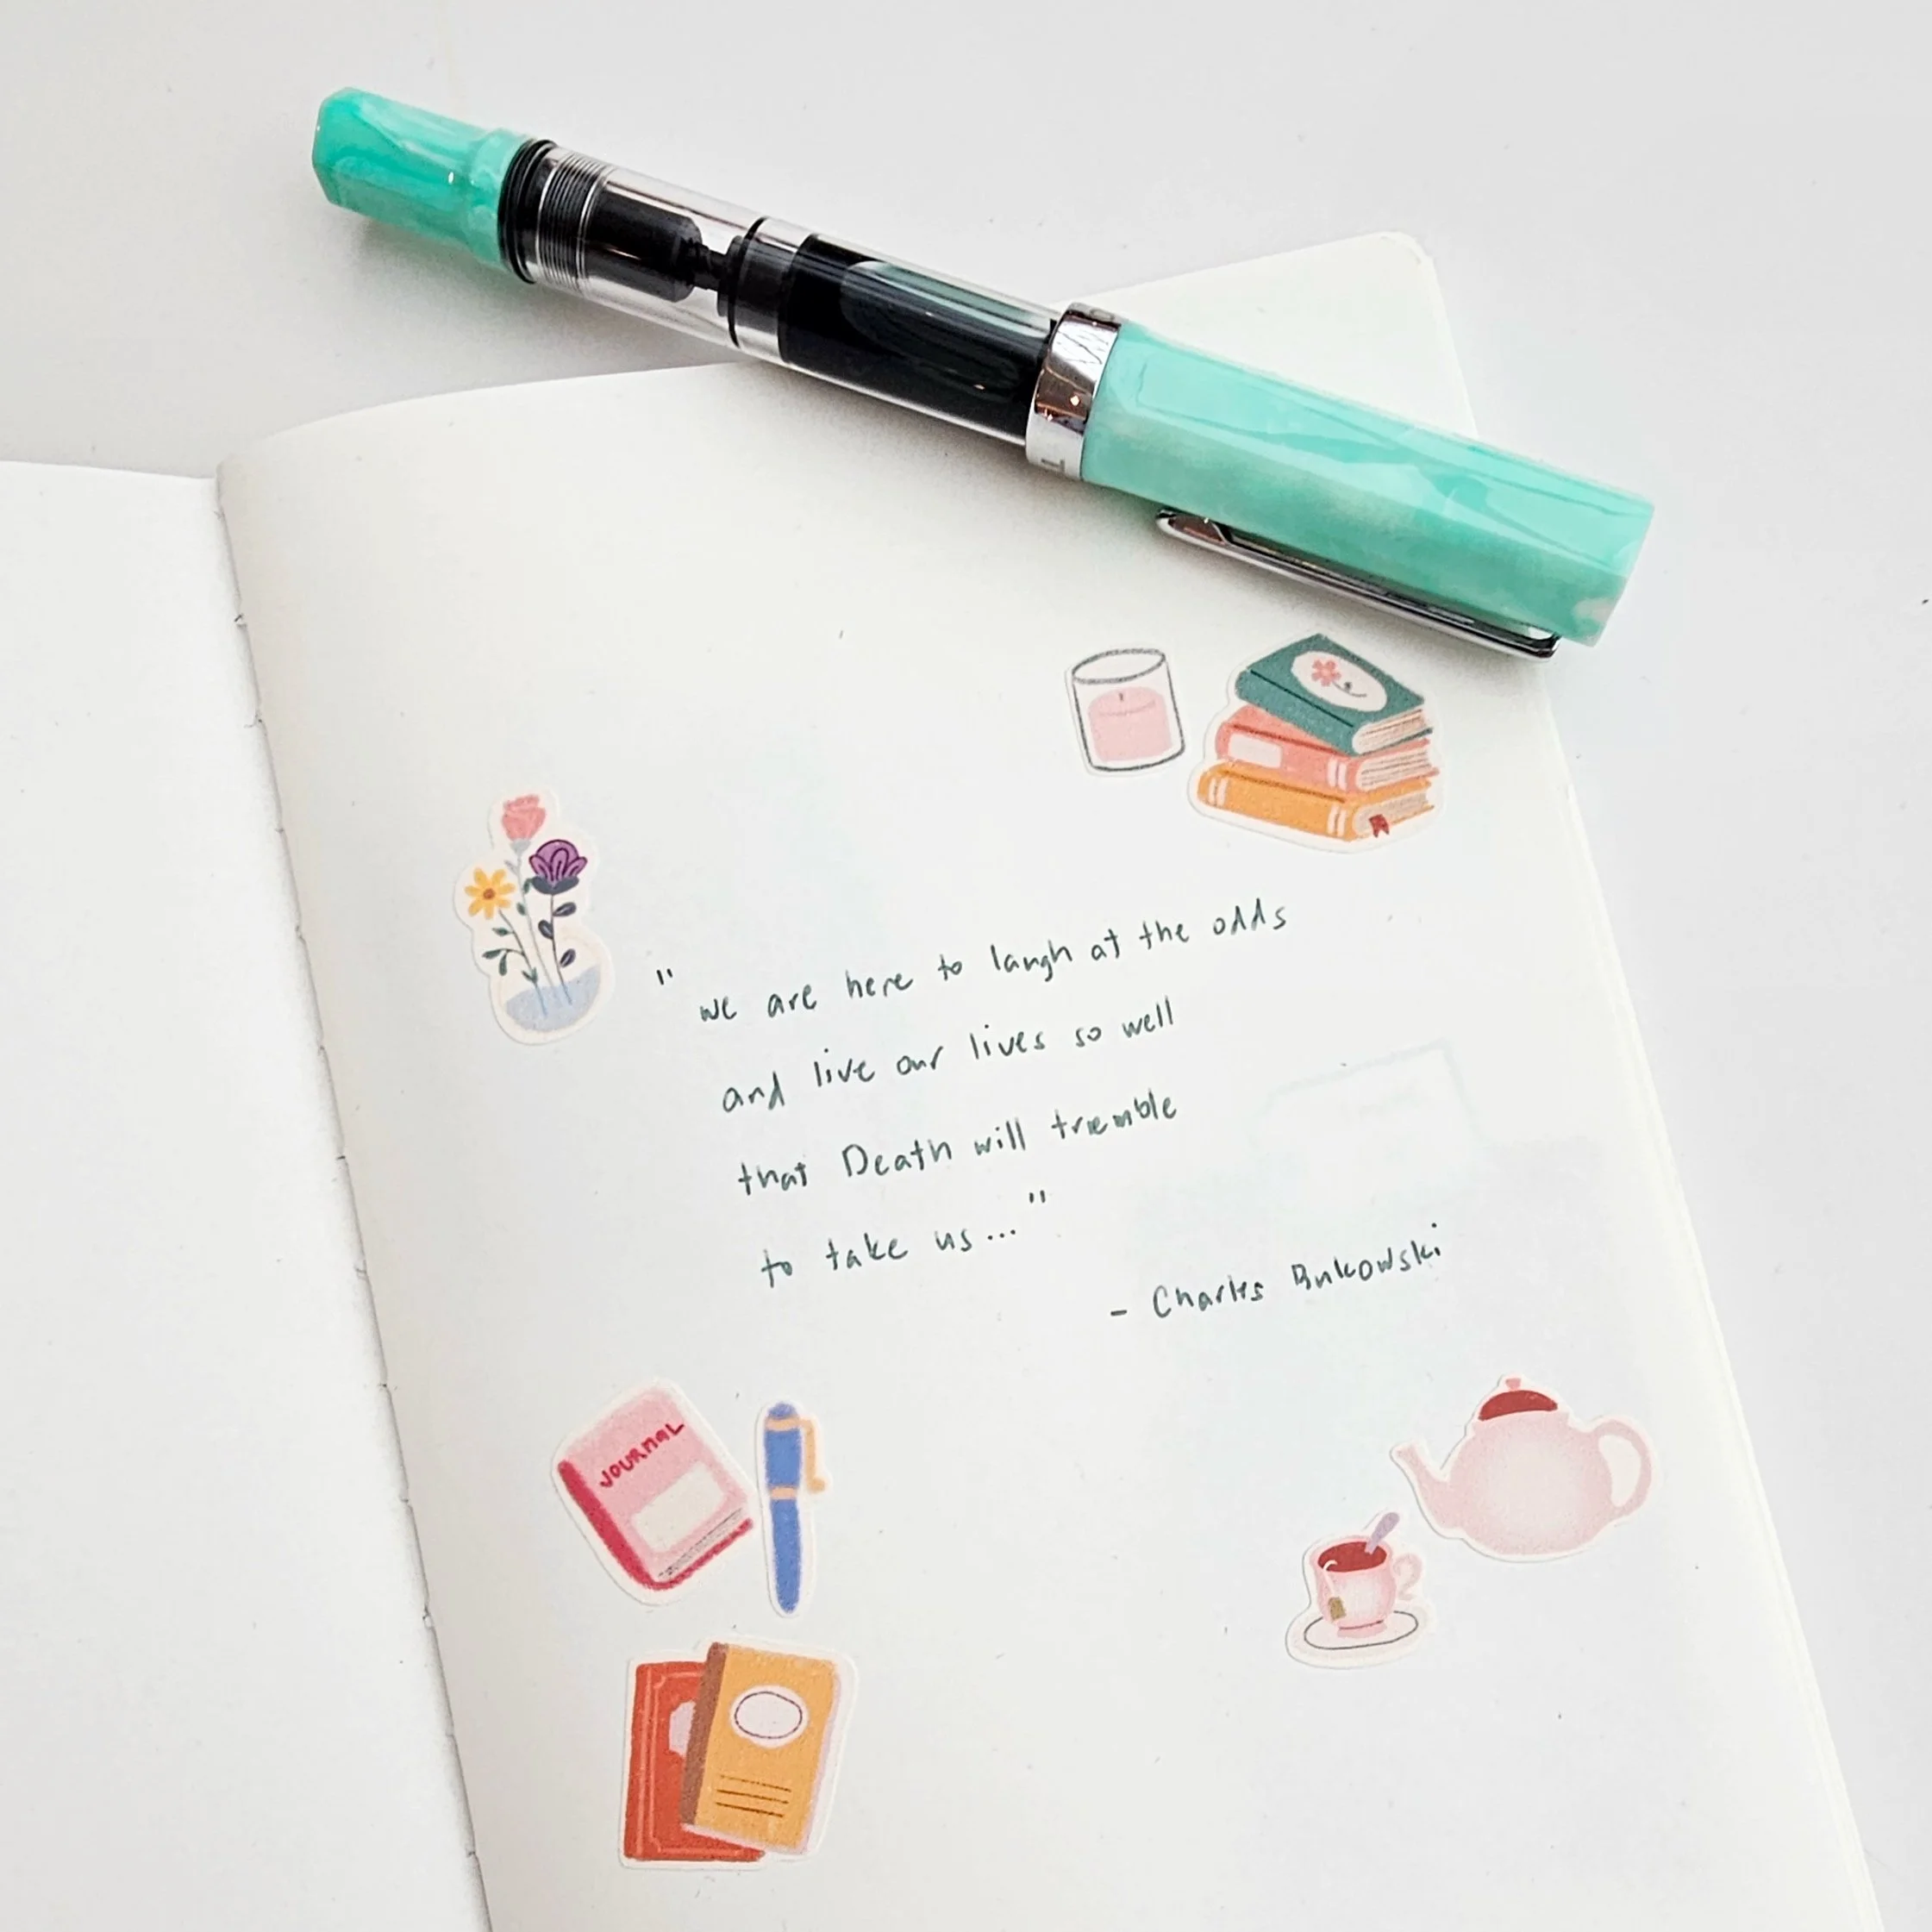 "we are here to laugh at the odds
and live our lives so well
that Death will tremble
to take us..."
- Charles Bukowski
JOURNAL